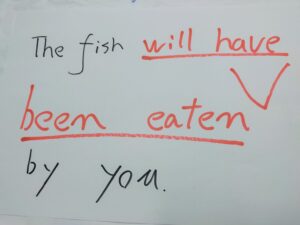 The fish will have
been eaten
by you.